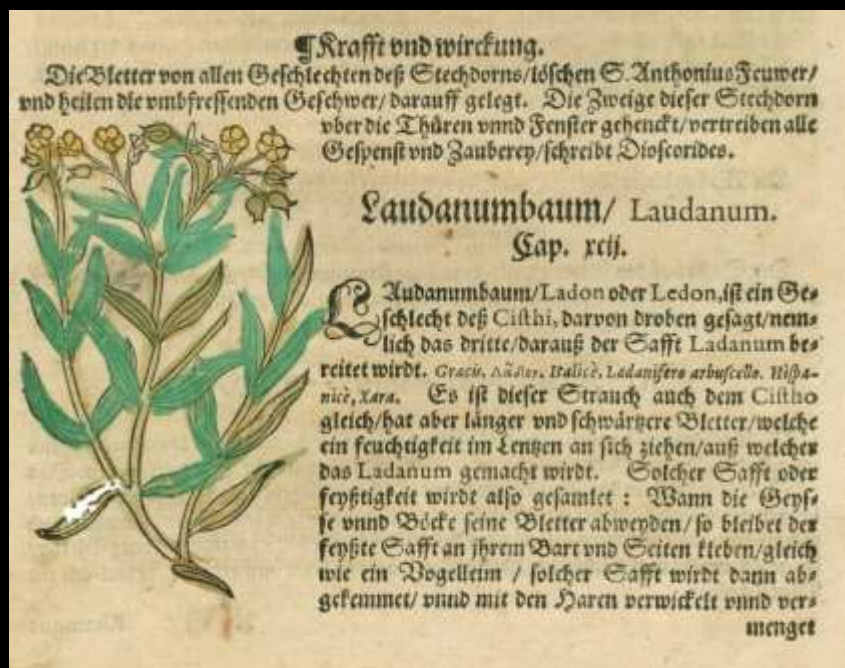 ¶Krafft vnd wirckung.
Die Bletter von allen Geschlechten deß Stechdorns/löschen S. Anthonius Feuwer/
vnd heilen die vmbfressenden Geschwer/ darauff gelegt. Die Zweige dieser Stechdorn
vber die Thüren vnnd Fenster gehenckt/vertreiben alle
Gespenst vnd Zauberey/schreibt Dioscorides.
Laudanumbaum/ Laudanum.
Cap. xcij.
LAudanumbaum/Ladon oder Ledon,ist ein Ge⸗
schlecht deß Cisthi, darvon droben gesagt/nem⸗
lich das dritte/darauß der Safft Ladanum be⸗
reitet wirdt. Græcis, Italicè, Ladanifero arbuscello. Hispa-
nicè, Xara. Es ist dieser Strauch auch dem Cistho
gleich/hat aber länger vnd schwärtzere Bletter/welche
ein feuchtigkeit im Lentzen an sich ziehen/auß welcher
das Ladanum gemacht wirdt. Solcher Safft oder
feyßtigkeit wirdt also gesamlet : Wann die Geys⸗
se vnnd Böcke seine Bletter abweyden/ so bleibet der
feyßte Safft an jhrem Bart vnd Seiten kleben/gleich
wie ein Vogelleim / solcher Safft wirdt dann ab⸗
gekemmet/ vnnd mit den Haren verwickelt vnnd ver⸗
menget